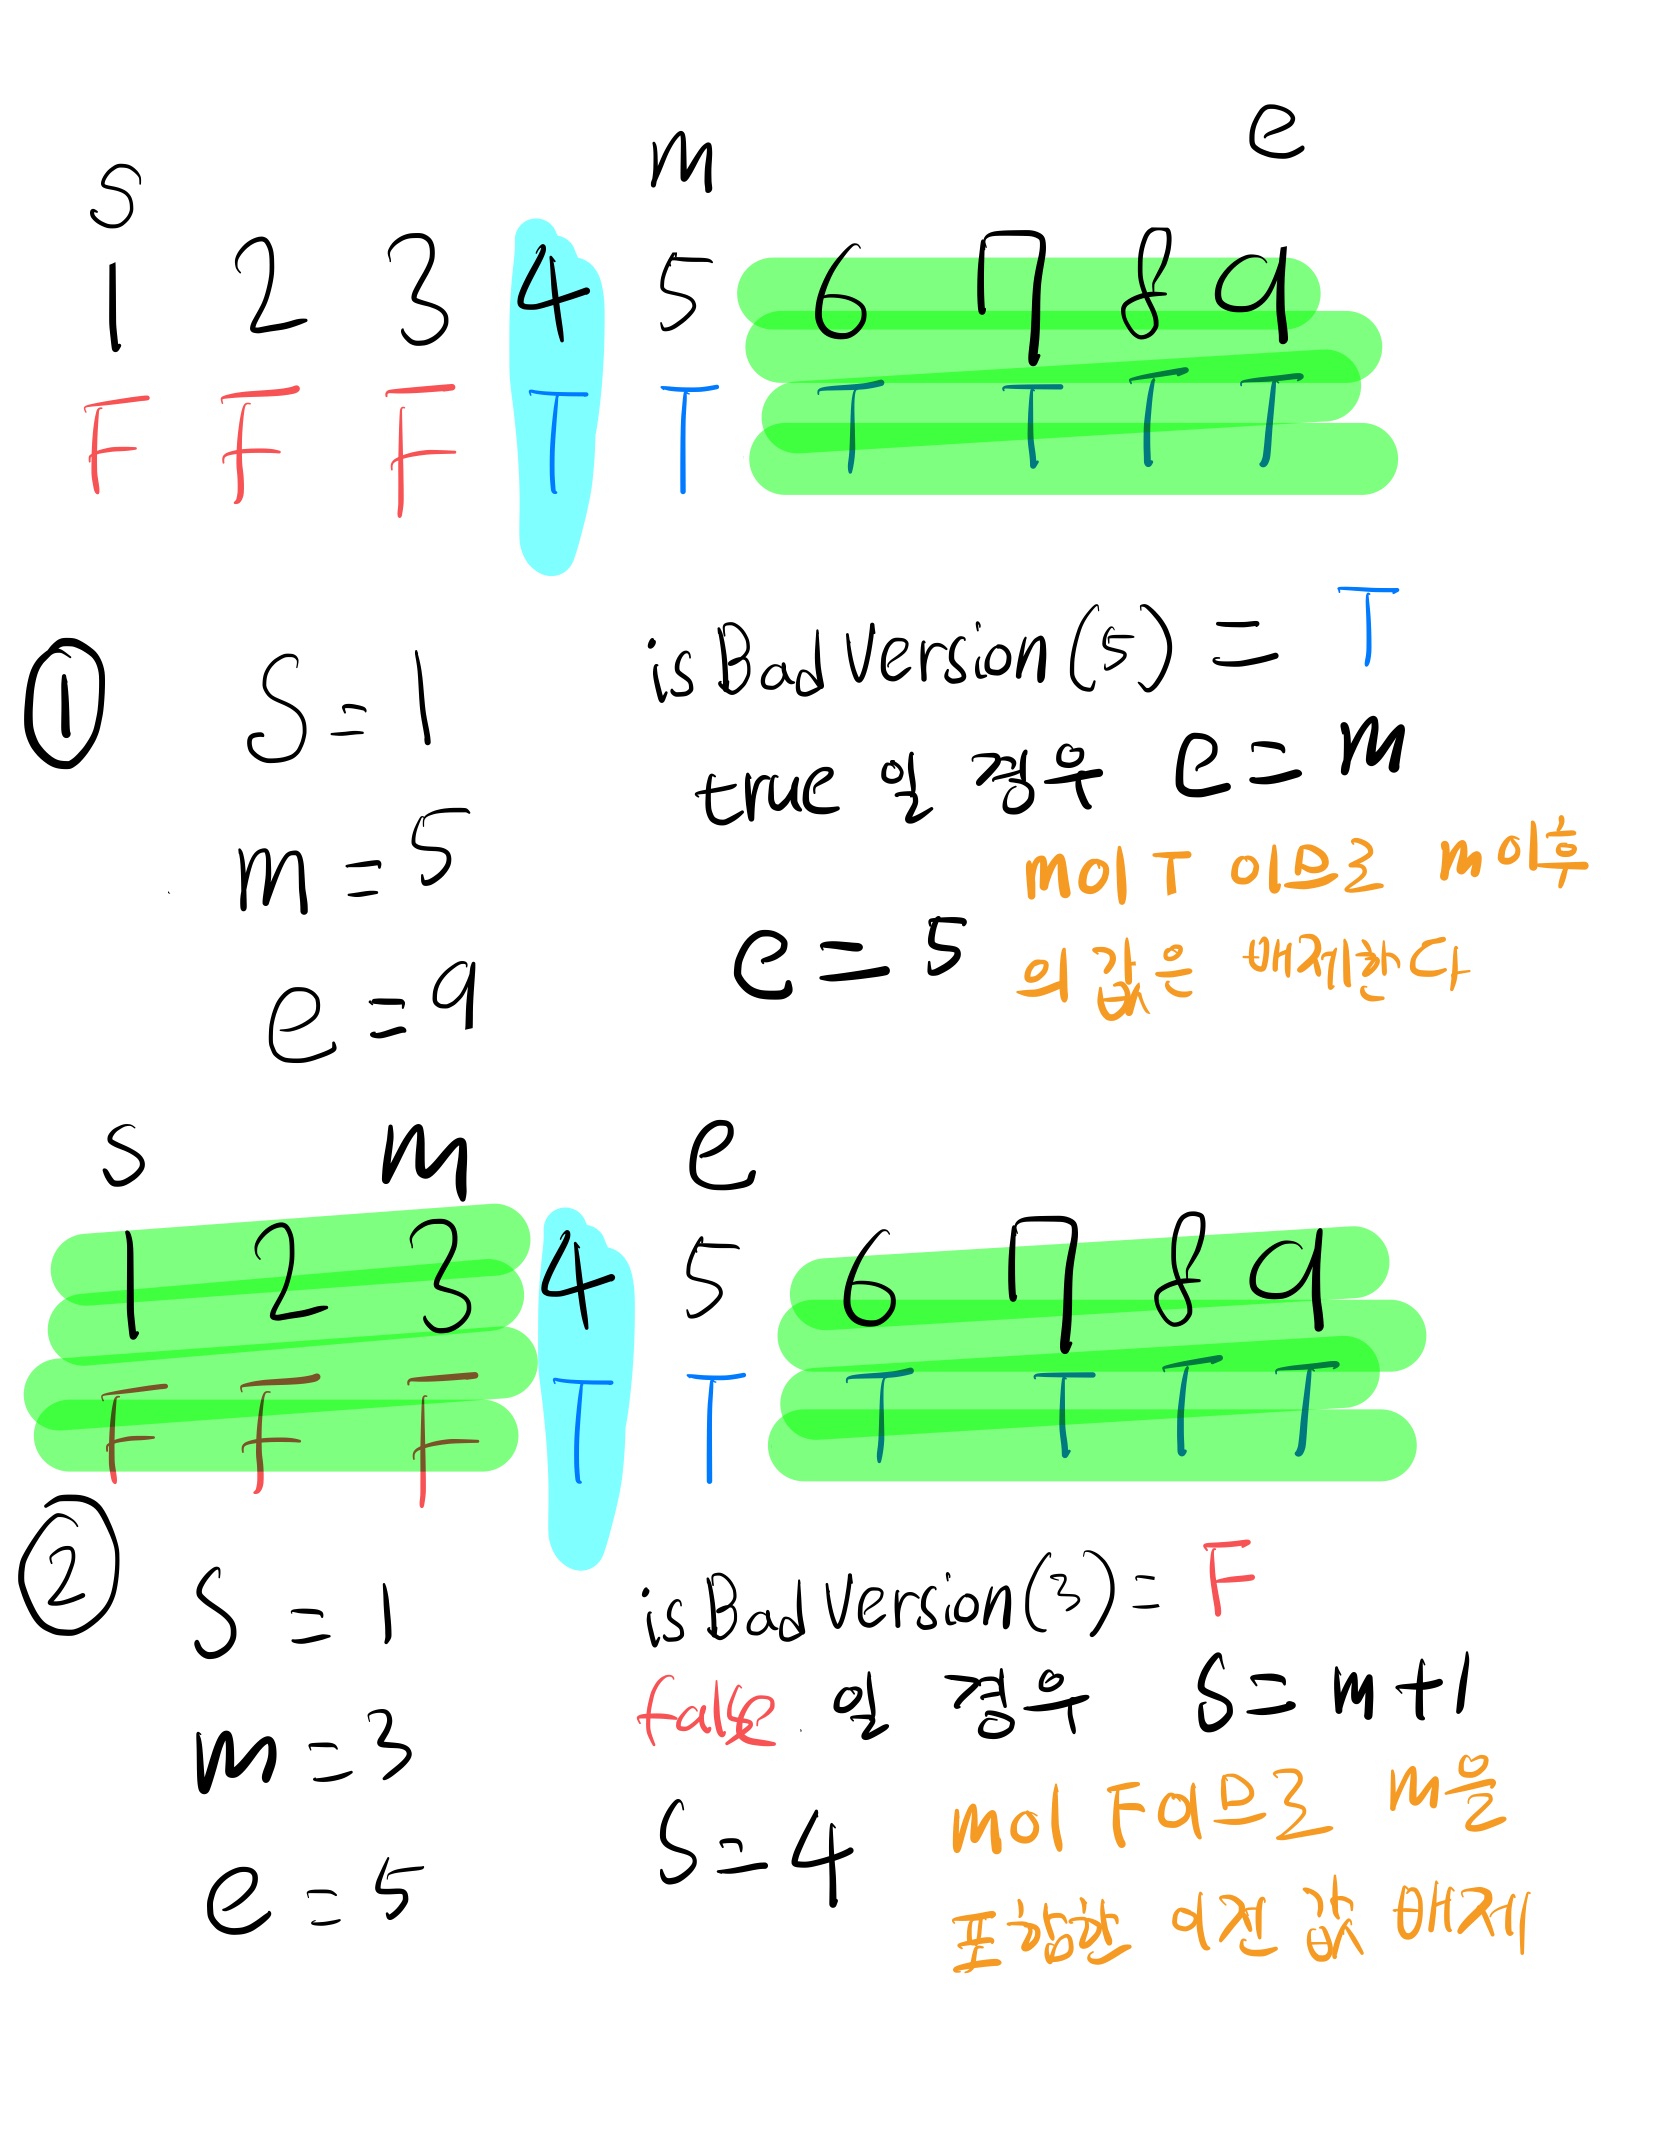 s m e
1 2 3 4 5 6 7 8 9
F F F T T T T T T
① S = 1 isBadVersion(5) = T
true 일 경우 e = m
m = 5 m이 T 이므로 m 이후
e = 5 의 값은 배제한다
e = 9
s m e
1 2 3 4 5 6 7 8 9
F F F T T T T T T
② S = 1 isBadVersion(3) = F
false 일 경우 S = m+1
m = 3 m이 F이므로 m을
S = 4
e = 5 포함한 이전 값 배제